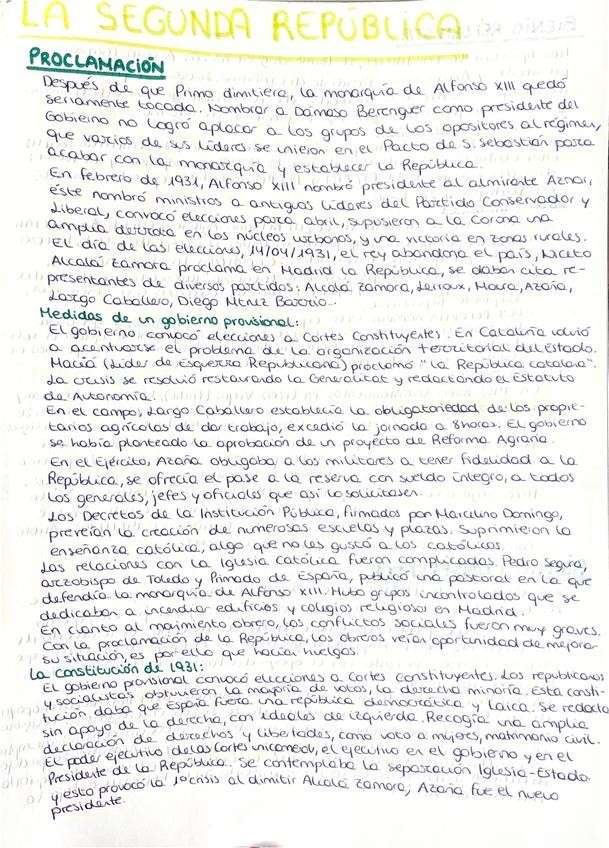 LA SEGUNDA REPÚBLICA
PROCLAMACIÓN
Después de que Primo dimitiera, la monarquía de Alfonso XIII quedó
seriamente tocada. Nombrar a Dámaso Berenguer como presidente del
Gobierno no logró aplacar a los grupos de los opositores al régimen,
que varios de sus líderes se unieron en el Pacto de S. Sebastián para
acabar con la monarquía y establecer la República.
En febrero de 1931, Alfonso XIII nombró presidente al almirante Aznar,
éste nombró ministros a antiguos líderes del Partido Conservador y
Liberal, convocó elecciones para abril, supusieron a la Corona una
amplia derrota en los núcleos urbanos, y una victoria en zonas rurales.
El día de las elecciones, 14/04/1931, el rey abandona el país, Niceto
Alcalá Zamora proclama en Madrid la República, se daban cita re-
presentantes de diversos partidos: Alcalá Zamora, Lerroux, Maura, Azaña,
Largo Caballero, Diego Mtnez Barrio...
Medidas de un gobierno provisional:
El gobierno convocó elecciones a Cortes Constituyentes. En Cataluña volvió
a acentuarse el problema de la organización territorial del Estado.
Maciá (líder de Esquerra Republicana) proclamó "la República catalana".
La crisis se resolvió restaurando la Generalitat y redactando el Estatuto
de Autonomía.
En el campo, Largo Caballero establecía la obligatoriedad de los propie-
tarios agrícolas de dar trabajo, excedió la jornada a 8horas. El gobierno
se había planteado la aprobación de un proyecto de Reforma Agraria.
En el Ejército, Azaña obligaba a los militares a tener fidelidad a la
República, se ofrecía el pase a la reserva con sueldo íntegro, a todos
los generales, jefes y oficiales que así lo solicitasen.
Los Decretos de la Institución Pública, firmados por Marcelino Domingo,
preveían la creación de numerosas escuelas y plazas. Suprimieron la
enseñanza católica, algo que no les gustó a los católicos.
Las relaciones con la Iglesia Católica fueron complicadas. Pedro Segura,
arzobispo de Toledo y Primado de España, publicó una pastoral en la que
defendía la monarquía de Alfonso XIII. Hubo grupos incontrolados que se
dedicaban a incendiar edificios y colegios religiosos en Madrid.
En cuanto al movimiento obrero, los conflictos sociales fueron muy graves.
Con la proclamación de la República, los obreros veían oportunidad de mejorar
su situación, es por ello que hacían huelgas.
La constitución de 1931:
El gobierno provisional convocó elecciones a Cortes constituyentes. Los republicanos
y socialistas obtuvieron la mayoría de votos, la derecha minoría. Esta consti-
tución daba que España fuera una república democrática y laica. Se redactó
sin apoyo de la derecha, con ideales de izquierda. Recogía una amplia
declaración de derechos y libertades, como voto a mujeres, matrimonio civil.
El poder ejecutivo de las Cortes unicameral, el ejecutivo en el gobierno y en el
Presidente de la República. Se contemplaba la separación Iglesia-Estado.
y esto provocó la 1º crisis al dimitir Alcalá Zamora; Azaña fue el nuevo
presidente.